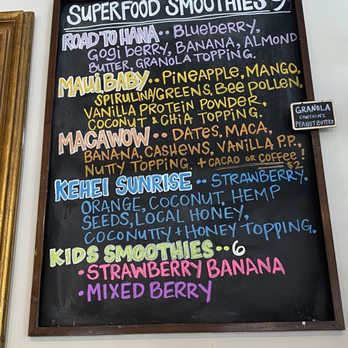 SUPERFOOD SMOOTHIES 9
ROAD TO HANA •• BLUEBERRY,
GOGI BERRY, BANANA, ALMOND
BUTTER, GRANOLA TOPPING.
MAUI BABY •• PINEAPPLE, MANGO,
SPIRULINA/GREENS, BEE POLLEN,
VANILLA PROTEIN POWDER,
COCONUT & CHIA TOPPING.
MACAWOW •• DATES, MACA,
BANANA, CASHEWS, VANILLA P.P.,
NUTTY TOPPING. + CACAO OR COFFEE!
$2
KEHEI SUNRISE •• STRAWBERRY,
ORANGE, COCONUT, HEMP
SEEDS, LOCAL HONEY,
COCONUTTY + HONEY TOPPING.
KIDS SMOOTHIES •• 6
• STRAWBERRY BANANA
• MIXED BERRY
GRANOLA
CONTAINS
PEANUT BUTTER